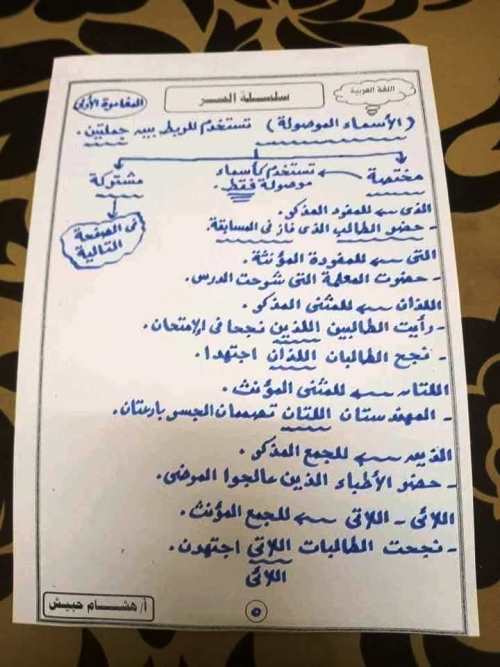 اللغة العربية
سلسلة السر
المغامرة الأولى
(الأسماء الموصولة) تستخدم للربط بين جملتين.
مختصة
تستخدم كأسماء موصولة فقط.
مشتركة
فى الصفحة التالية
الذى ← للمفرد المذكر.
- حضر الطالب الذى فاز فى المسابقة.
التى ← للمفردة المؤنثة.
- حضرت المعلمة التى شرحت الدرس.
اللذان ← للمثنى المذكر.
- رأيت الطالبين اللذين نجحا فى الإمتحان.
- نجح الطالبان اللذان اجتهدا.
اللتان ← للمثنى المؤنث.
- المهندستان اللتان تصممان الجسر بارعتان.
الذين ← للجمع المذكر.
- حضر الأطباء الذين عالجوا المرضى.
اللائى - اللاتى ← للجمع المؤنث.
- نجحت الطالبات اللاتى اجتهدن.
اللائى
أ/ هشام حبيش
٥